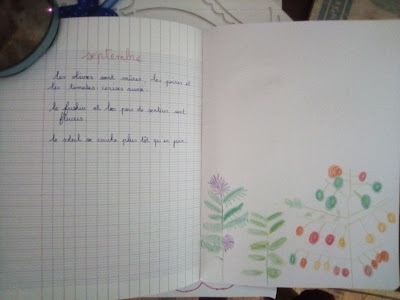 septembre
les olives sont mûres, les poires et
les tomates cerises aussi.
le fushia et les pois de senteur sont
fleuris.
le soleil se couche plus tôt qu'en juin.